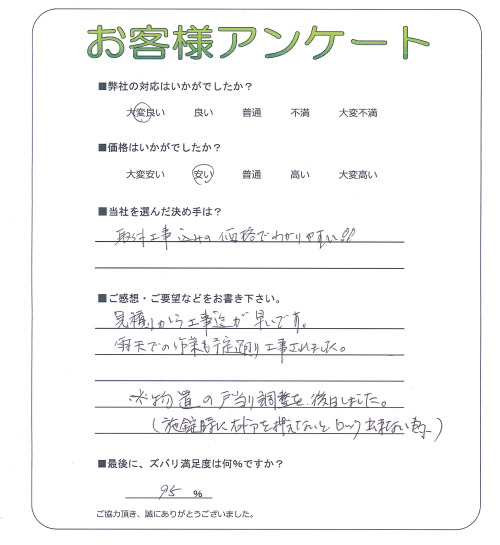 お客様アンケート
■弊社の対応はいかがでしたか？
大変良い 良い 普通 不満 大変不満
■価格はいかがでしたか？
大変安い 安い 普通 高い 大変高い
■当社を選んだ決め手は？
取付工事込みの価格でわかりやすい!!
■ご感想・ご要望などをお書き下さい。
見積りから工事迄が早いです。
雨天での作業も予定通り工事されました。
※物置の戸当り調整を後日しました。
(施錠時に を押えないとロック出来ない為)
■最後に、ズバリ満足度は何%ですか？
95 %
ご協力頂き、誠にありがとうございました。